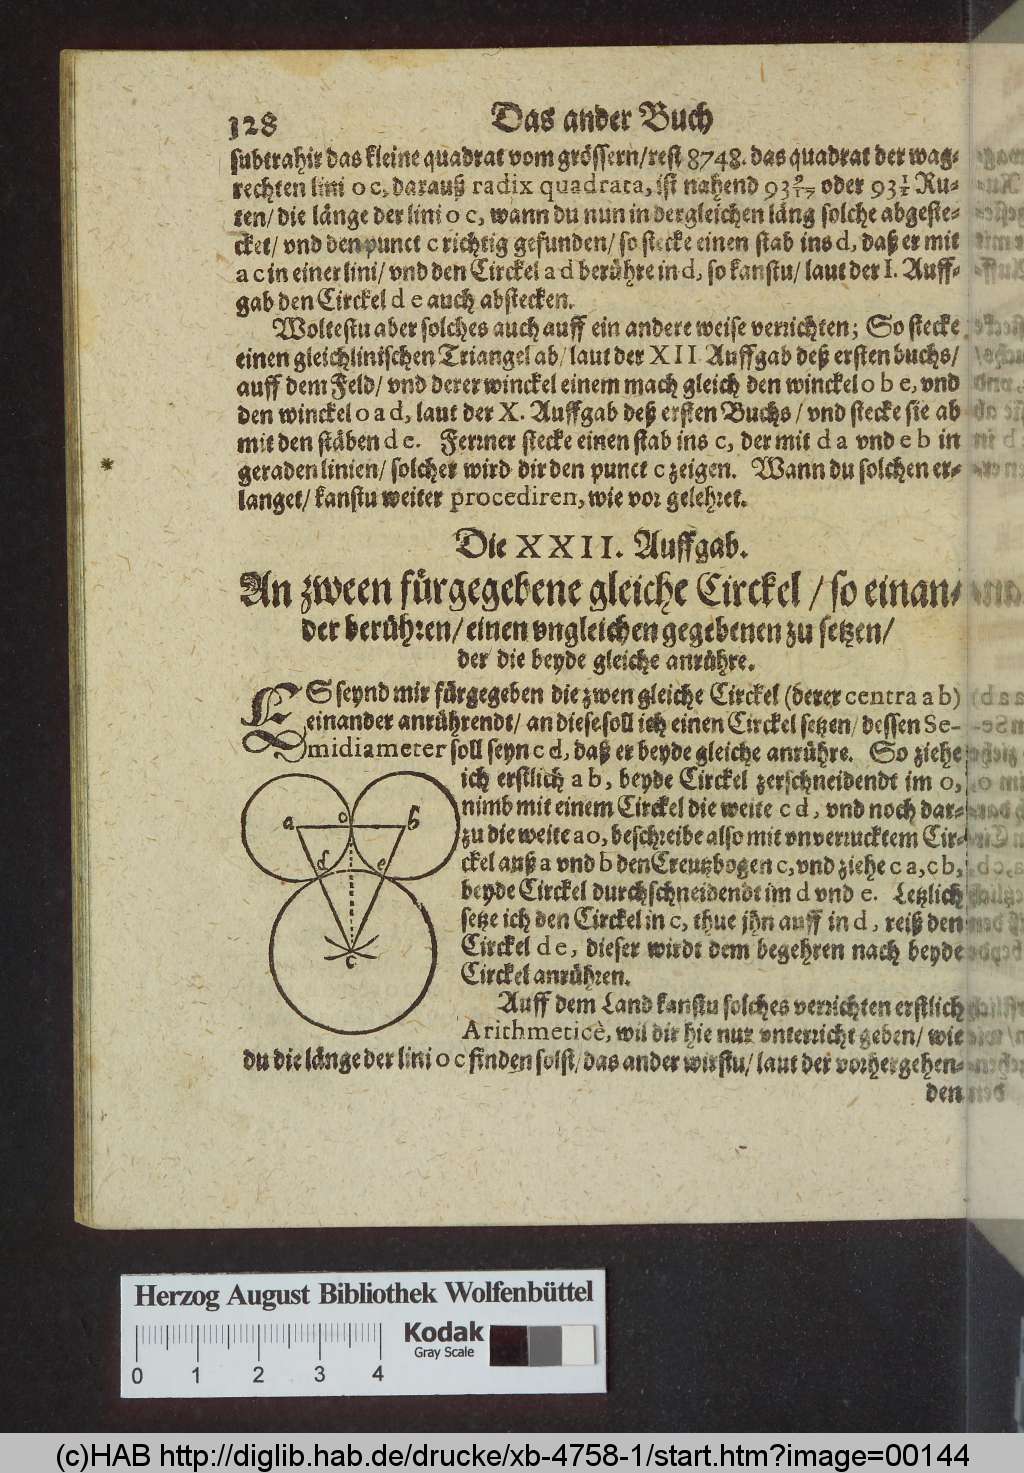 128 Das ander Buch
subtrahir das kleine quadrat vom grössern/rest 8748. das quadrat der wag-
rechten lini o c, darauß radix quadrata, ist nahend 93 oder 93½ Ru-
ten/ die länge der lini o c, wann du nun in dergleichen läng solche abgeste-
cket/ vnd den punct c richtig gefunden/ so stecke einen stab ins d, daß er mit
a c in einer lini/ vnd den Circkel a d berühre in d, so kanstu/ laut der I. Auff-
gab den Circkel d e auch abstecken.
Woltestu aber solches auch auff ein andere weise verrichten; So stecke
einen gleichlinischen Triangel ab/ laut der XII Auffgab deß ersten buchs/
auff dem Feld/ vnd derer winckel einem mach gleich den winckel o b e, vnd
den winckel o a d, laut der X. Auffgab deß ersten Buchs/ vnd stecke sie ab
mit den stäben d e. Ferrner stecke einen stab ins c, der mit d a vnd e b in
geraden linien/ solcher wird dir den punct c zeigen. Wann du solchen er-
langet/ kanstu weiter procediren, wie vor gelehret.
Die XXII. Auffgab.
An zween fürgegebene gleiche Circkel/ so einan-
der berühren/ einen vngleichen gegebenen zu setzen/
der die beyde gleiche anrühre.
ES seynd mir fürgegeben die zwen gleiche Circkel (derer centra a b)
einander anrührendt/ an diese soll ich einen Circkel setzen/ dessen Se-
midiameter soll seyn c d, daß er beyde gleiche anrühre. So ziehe
ich erstlich a b, beyde Circkel zerschneidendt im o,
nimb mit einem Circkel die weite c d, vnd noch dar-
zu die weite a o, beschreibe also mit vnverrucktem Cir-
ckel auß a vnd b den Creutzbogen c, vnd ziehe c a, c b,
beyde Circkel durchschneidendt im d vnd e. Letzlich
setze ich den Circkel in c, thue jhn auff in d, reiß den
Circkel d e, dieser wirdt dem begehren nach beyde
Circkel anrühren.
a o b
d e
c
Auff dem Land kanstu solches verrichten erstlich
Arithmeticè, wil dir hie nur vnterricht geben/ wie
du die länge der lini o c finden solst/ das ander wirstu/ laut der vorhergehen-
den
Herzog August Bibliothek Wolfenbüttel
Kodak
Gray Scale
0 1 2 3 4
(c)HAB http://diglib.hab.de/drucke/xb-4758-1/start.htm?image=00144